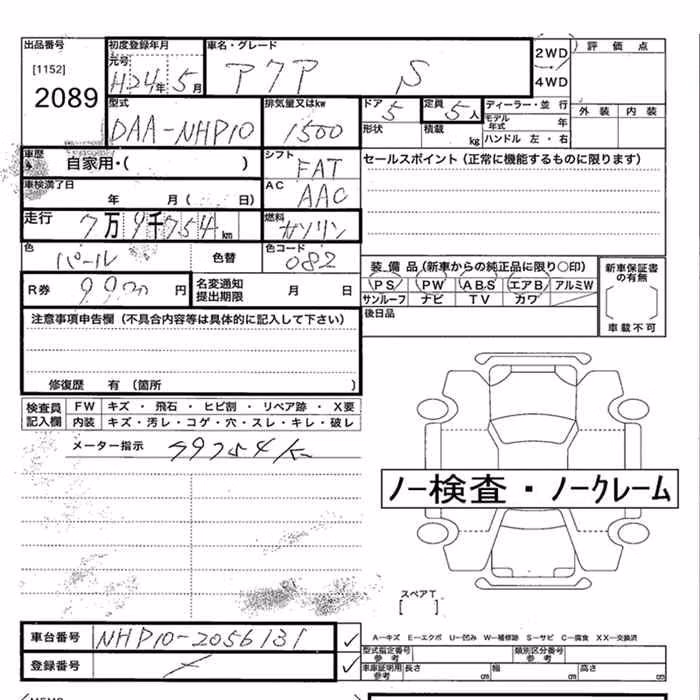 出品番号
[1152]
2089
初度登録年月
元号
H24年5月
車名・グレード
アクア S
2WD
4WD
評価点
外装 内装
型式
DAA-NHP10
排気量又はkw
1500
ドア
5
定員
5人
形状
積載
kg
ディーラー・並行
モデル年式 年
ハンドル 左・右
車歴
自家用・( )
シフト
FAT
車検満了日
年 月( 日)
AC
AAC
セールスポイント(正常に機能するものに限ります)
走行
7万9千754km
燃料
ガソリン
色
パール
色替
色コード
082
R券
円
名変通知
提出期限
月 日
装備品(新車からの純正品に限り○印)
PS PW ABS エアB アルミW
サンルーフ ナビ TV カワ
新車保証書
の有無
車載不可
後日品
注意事項申告欄(不具合内容等は具体的に記入して下さい)
修復歴 有(箇所 )
検査員
記入欄
FW キズ・飛石・ヒビ割・リペア跡・X要
内装 キズ・汚レ・コゲ・穴・スレ・キレ・破レ
メーター指示
79754K
ノー検査・ノークレーム
スペアT
[ ]
車台番号
NHP10-2056131
登録番号
A-キズ E-エクボ U-凹み W-補修跡 S-サビ C-腐食 XX-交換済
型式指定番号
参考
類別区分番号
参考
車庫証明用
参考
長さ cm 幅 cm 高さ cm
MEMO